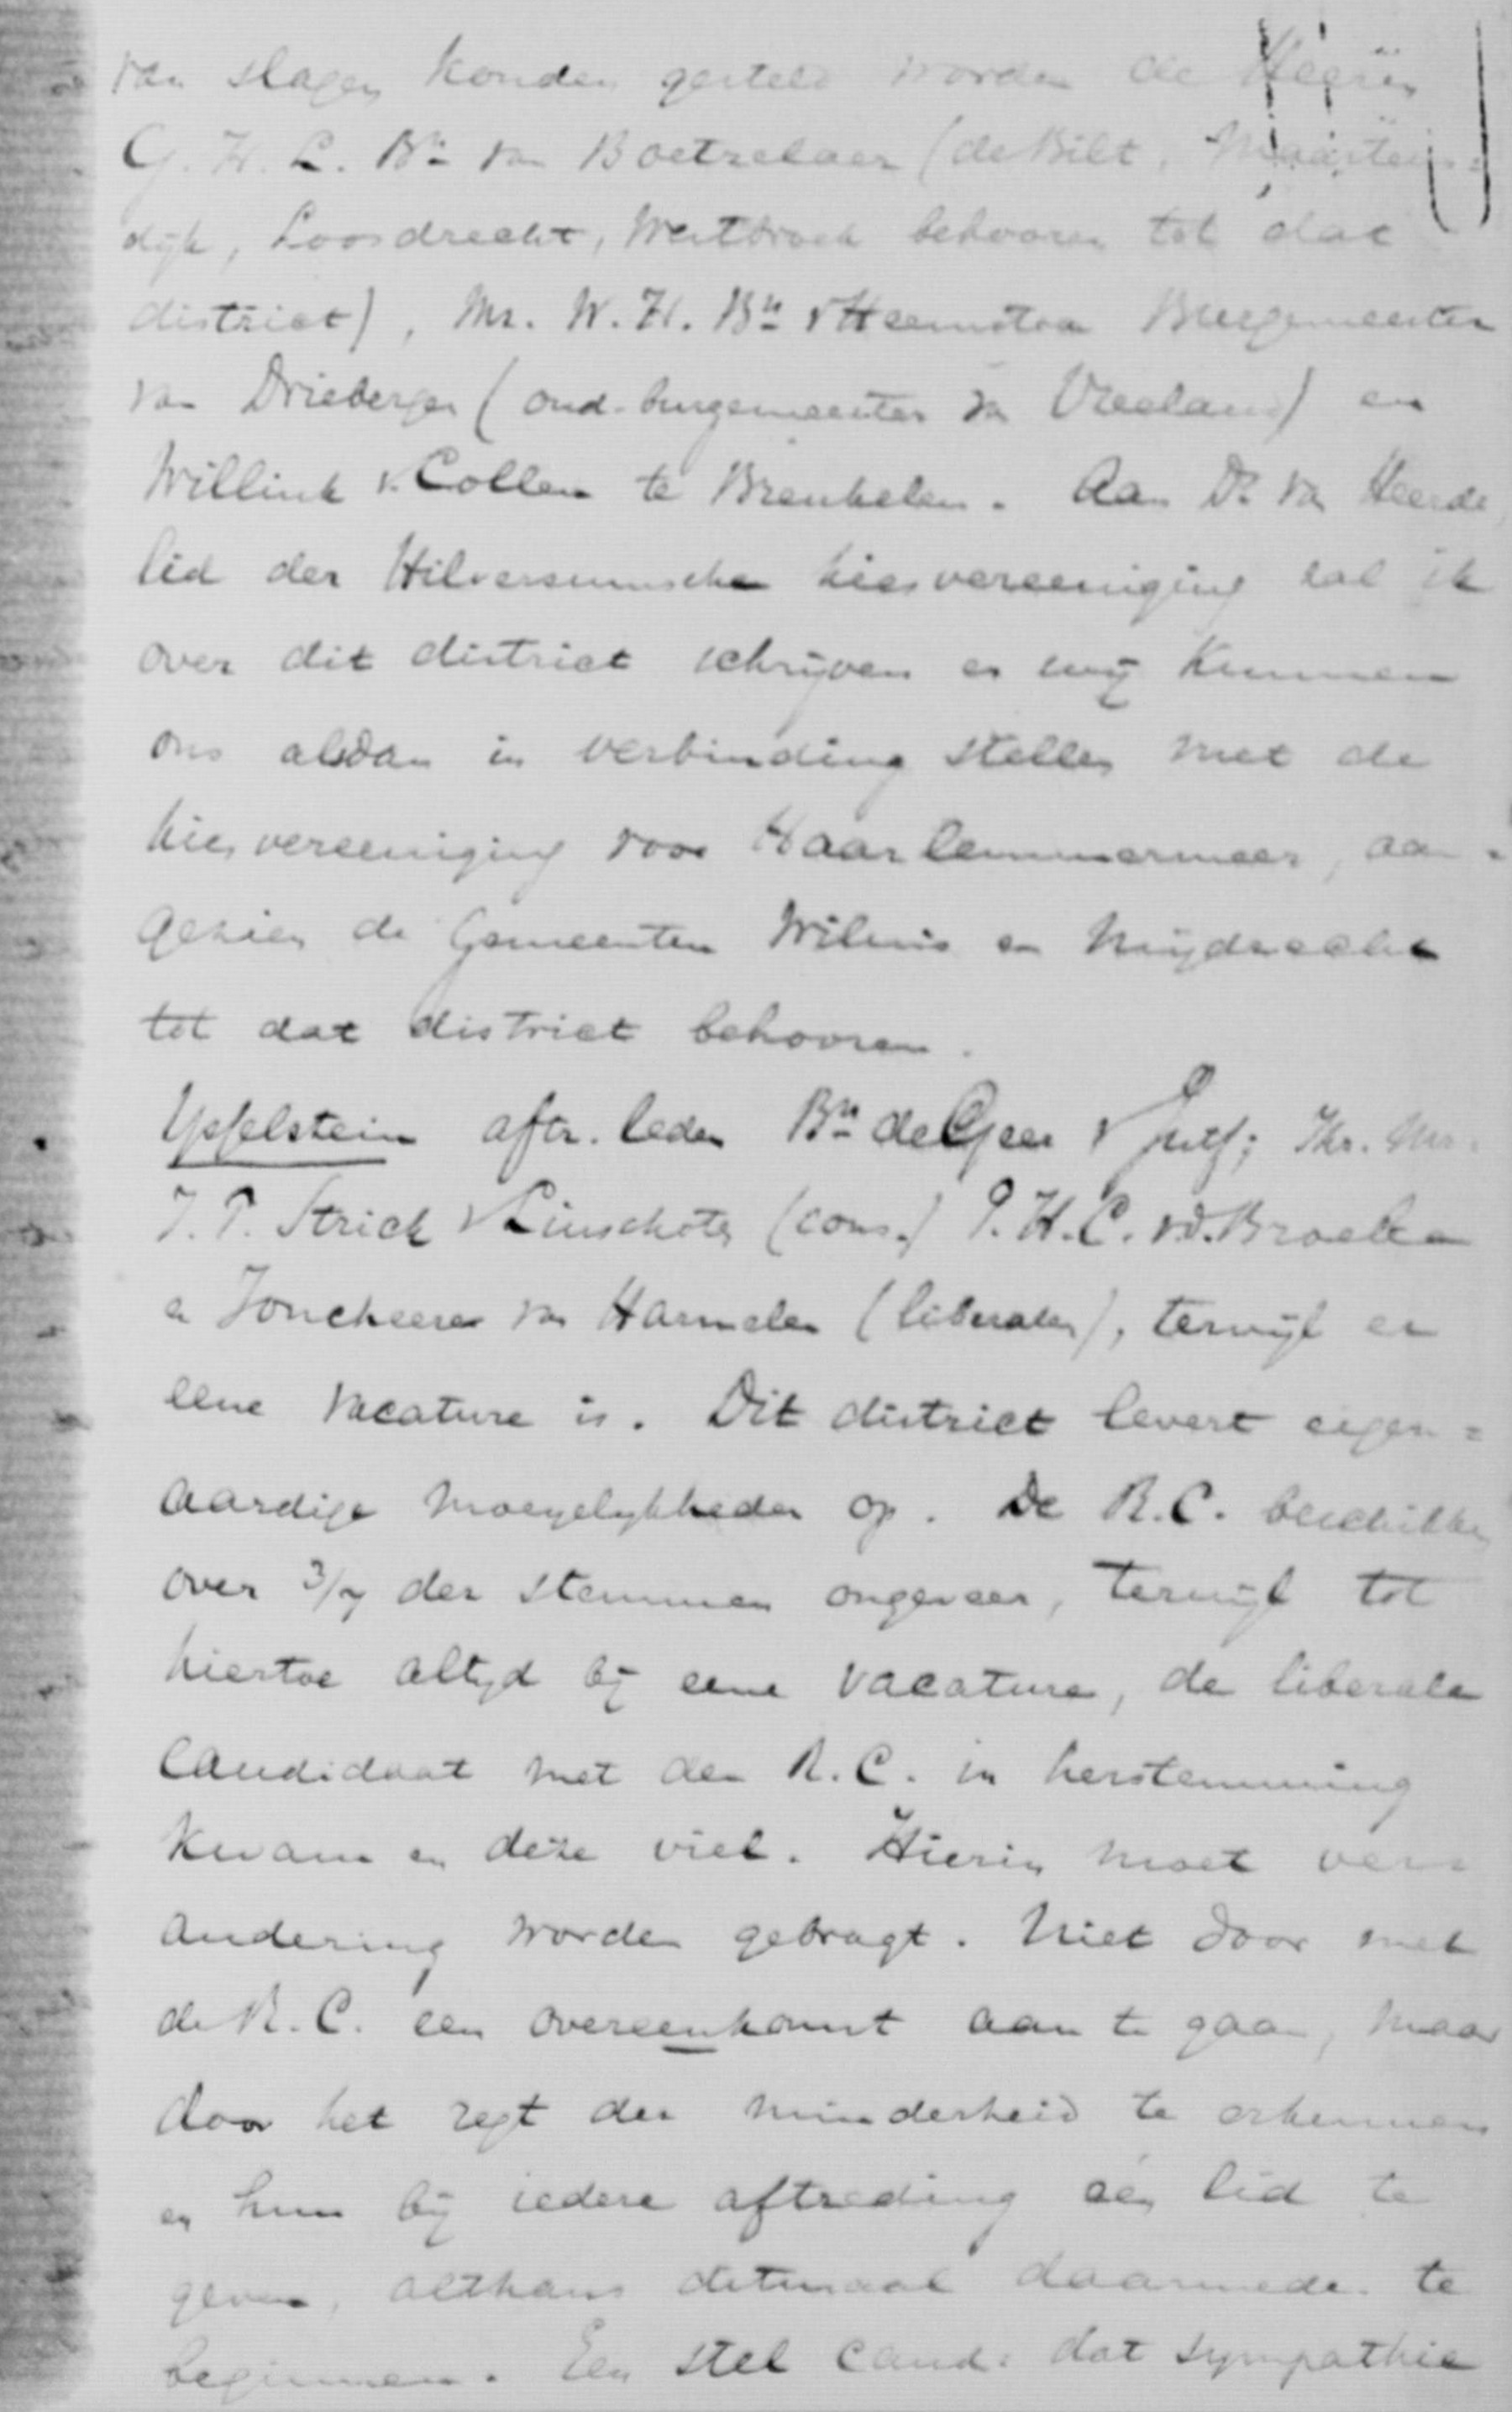 van slagen konden gesteld worden de Heeren
G. H. L. Bn van Boetzelaer (de Bilt, Maartens=
dijk, Loosdrecht, Westbroek behooren tot dat
district), Mr. W. H. Bn v Heemstra Burgemeester
van Driebergen (oud-burgemeester van Vreeland) en
Willink v. Collen te Breukelen. Aan Dr van Heerde,
lid der Hilversumsche kiesvereeniging zal ik
over dit district schrijven en wij kunnen
ons alsdan in verbinding stellen met de
kiesvereeniging voor Haarlemmermeer, aan=
gezien de Gemeenten Wilnis en Mijdrecht
tot dat district behooren.
Ysselstein aftr. leden Bn de Geer v Jutf; Jhr. Mr.
J. P. Strick v Linschoten (cons.) P. H. C. v.d. Broeke
en Joncheere van Harmelen (liberalen), terwijl er
eene vacature is. Dit district levert eigen=
aardige moeyelykheden op. De R.C. beschikken
over 3/7 der stemmen ongeveer, terwijl tot
hiertoe altyd bij eene vacature, de liberale
Candidaat met den R.C. in herstemming
kwam en deze viel. Hierin moet ver=
andering worden gebragt. Niet door met
de R.C. een overeenkomst aan te gaan, maar
door het regt der minderheid te erkennen
en hun bij iedere aftreding één lid te
geven, althans ditmaal daarmede te
beginnen. Een stel cand: dat sympathie